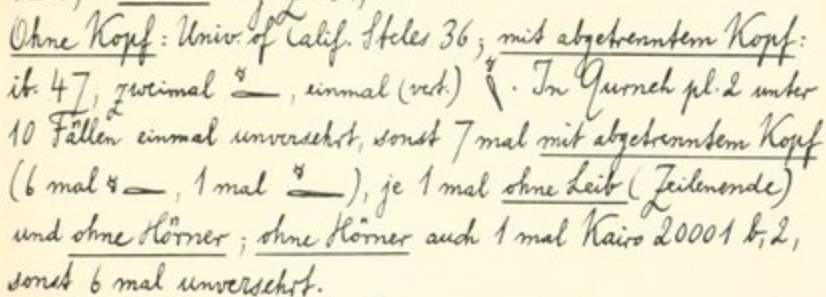 Ohne Kopf: Univ. of Calif. Steles 36; mit abgetrenntem Kopf:
ib. 47, zweimal , einmal (vert.) . In Qurneh pl. 2 unter
10 Fällen einmal unversehrt, sonst 7 mal mit abgetrenntem Kopf
(6 mal , 1 mal ), je 1 mal ohne Leib (Zeilenende)
und ohne Hörner; ohne Hörner auch 1 mal Kairo 20001 b, 2,
sonst 6 mal unversehrt.